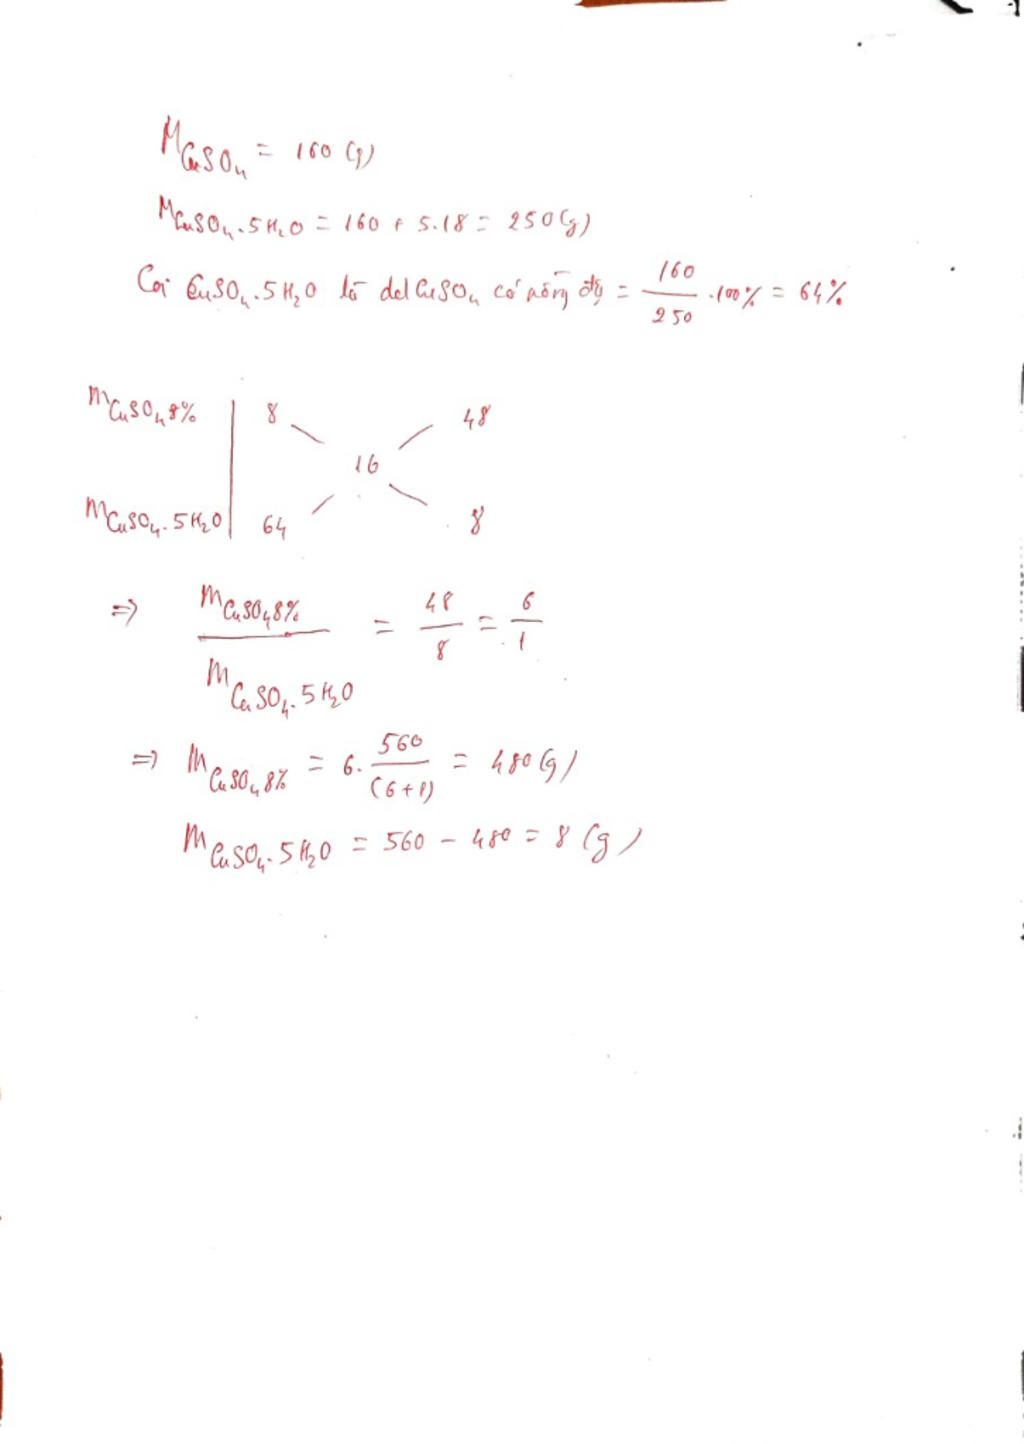 M CuSO₄ = 160 (g)
M CuSO₄.5H₂O = 160 + 5.18 = 250 (g)
Coi CuSO₄.5H₂O là dd CuSO₄ có nồng độ = 160/250 .100% = 64%
m CuSO₄ 8% | 8 48
16
m CuSO₄.5H₂O | 64 8
=> m CuSO₄ 8% / m CuSO₄.5H₂O = 48/8 = 6/1
=> m CuSO₄ 8% = 6. 560/(6+1) = 480 (g)
m CuSO₄.5H₂O = 560 - 480 = 8 (g)